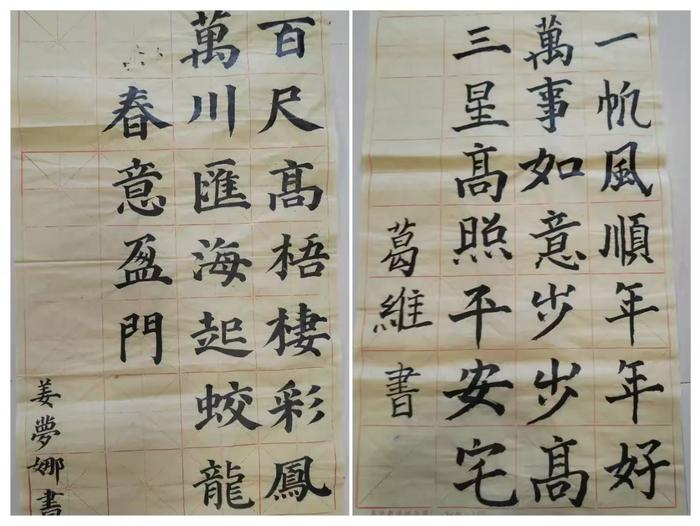 百尺高梧棲彩鳳
萬川匯海起蛟龍
春意盈門
姜夢娜書
一帆風順年年好
萬事如意步步高
三星高照平安宅
葛維書